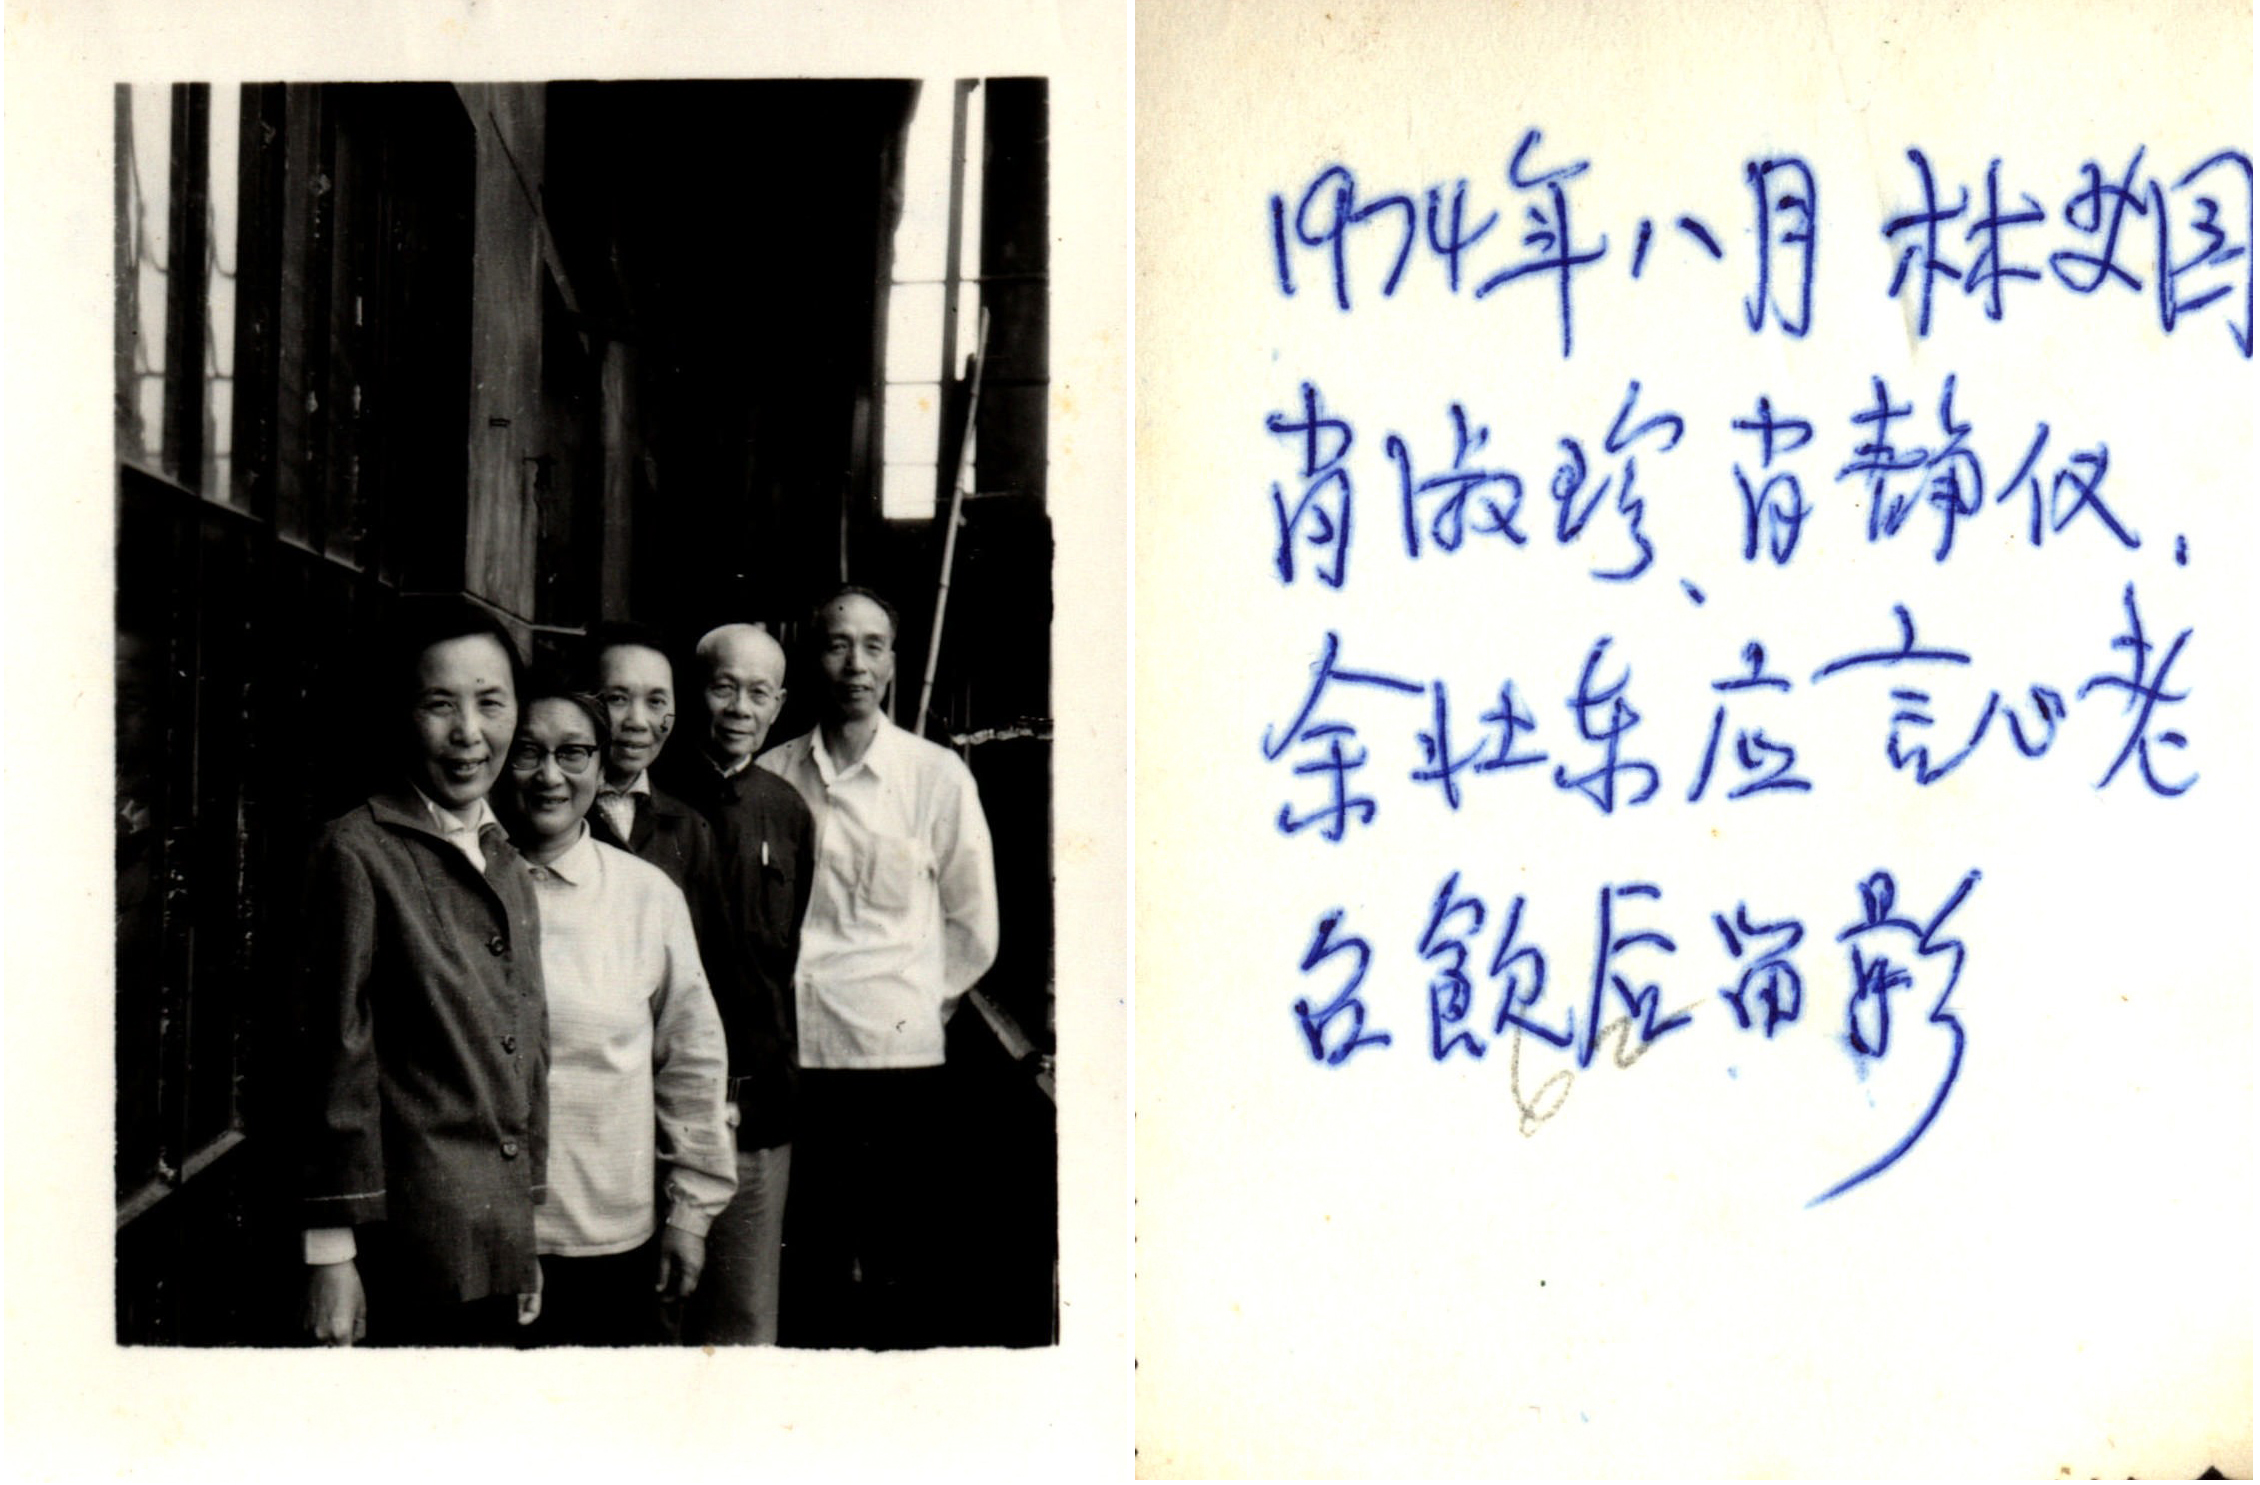 1974年八月 林爱国
肖淑珍、肖静仪.
余壮东应言心老
召飲后留影
62